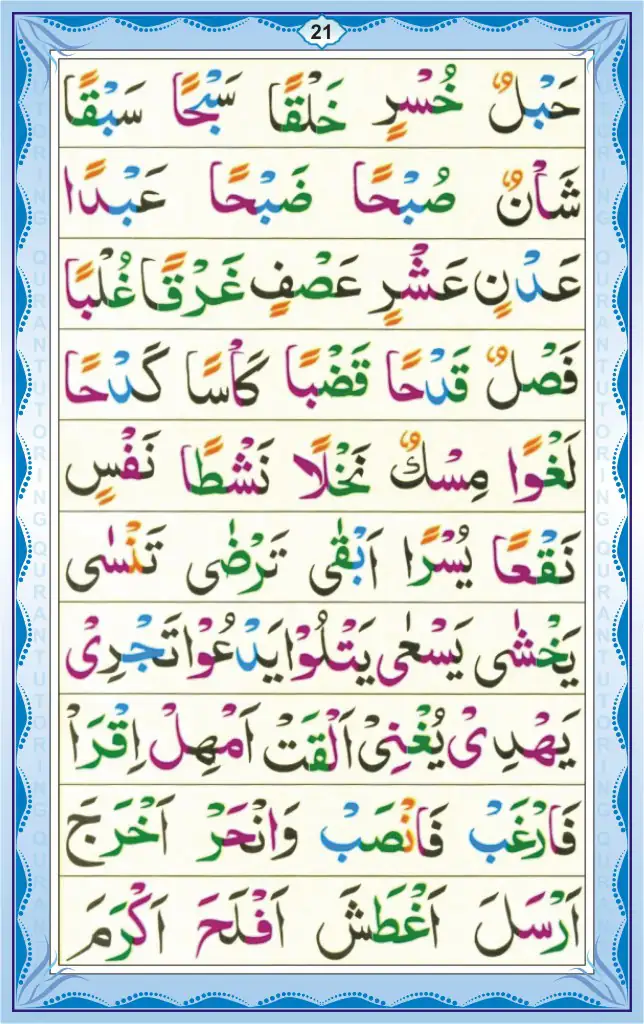 21
حَبْلٌ خُسْرٍ خَلْقًا سَبْحًا سَبْقًا
شَأْنٌ صُبْحًا ضَبْحًا عَبْدًا
عَدْنٍ عَشْرٍ عَصْفٍ غَرْقًا غُلْبًا
فَصْلٌ قَدْحًا قَضْبًا كَأْسًا كَدْحًا
لَغْوًا مِسْكٌ نَخْلًا نَشْطًا نَفْسٍ
نَقْعًا يُسْرًا اَبْقٰى تَرْضٰى تَنْسٰى
يَخْشٰى يَسْعٰى يَتْلُوْا يَدْعُوْا تَجْرِىْ
يَهْدِىْ يُغْنِىْ اَلْقَتْ اَمْهِلْ اِقْرَاْ
فَارْغَبْ فَانْصَبْ وَانْحَرْ اَخْرَجَ
اَرْسَلَ اَغْطَشَ اَفْلَحَ اَكْرَمَ
QURAN TUTORING
QURAN TUTORING